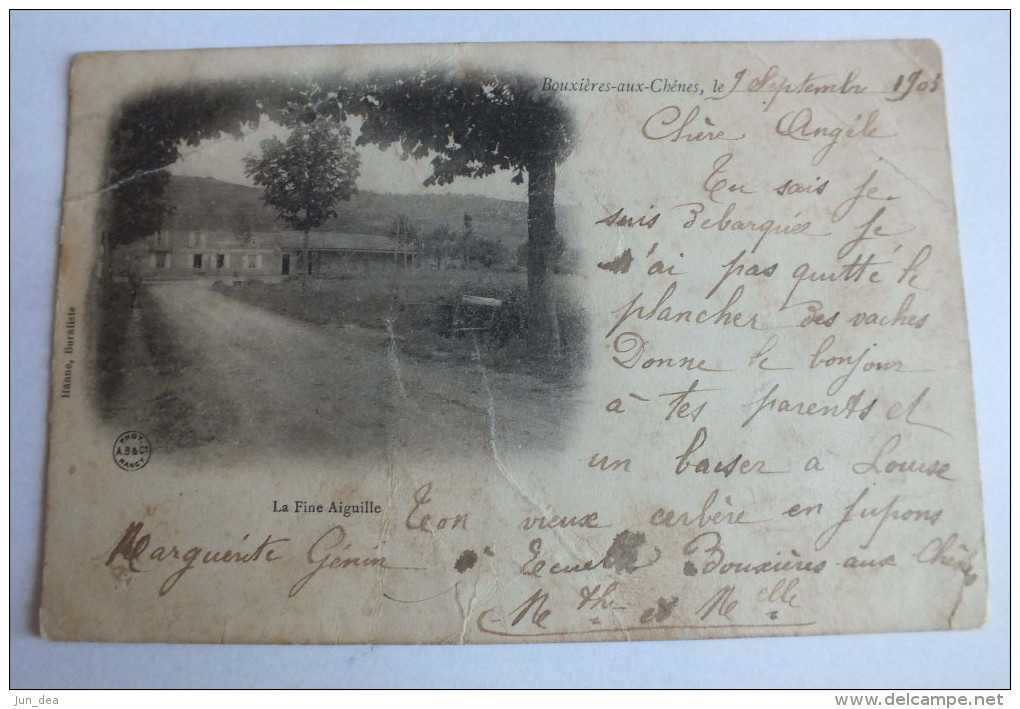 Bouxières-aux-Chênes, le 9 Septembre 1903
Chère Angèle
Tu sais je
suis debarquée je
n'ai pas quitté le
plancher des vaches
Donne le bonjour
à tes parents et
un baiser a Louise
Ton vieux cerbère en jupons
Marguerite Génin à Ecuelle Bouxières-aux Chênes
Mthe et Melle
La Fine Aiguille
Hanne, Buraliste
PHOT
A.B & Cie
NANCY
jun_dea
www.delcampe.net